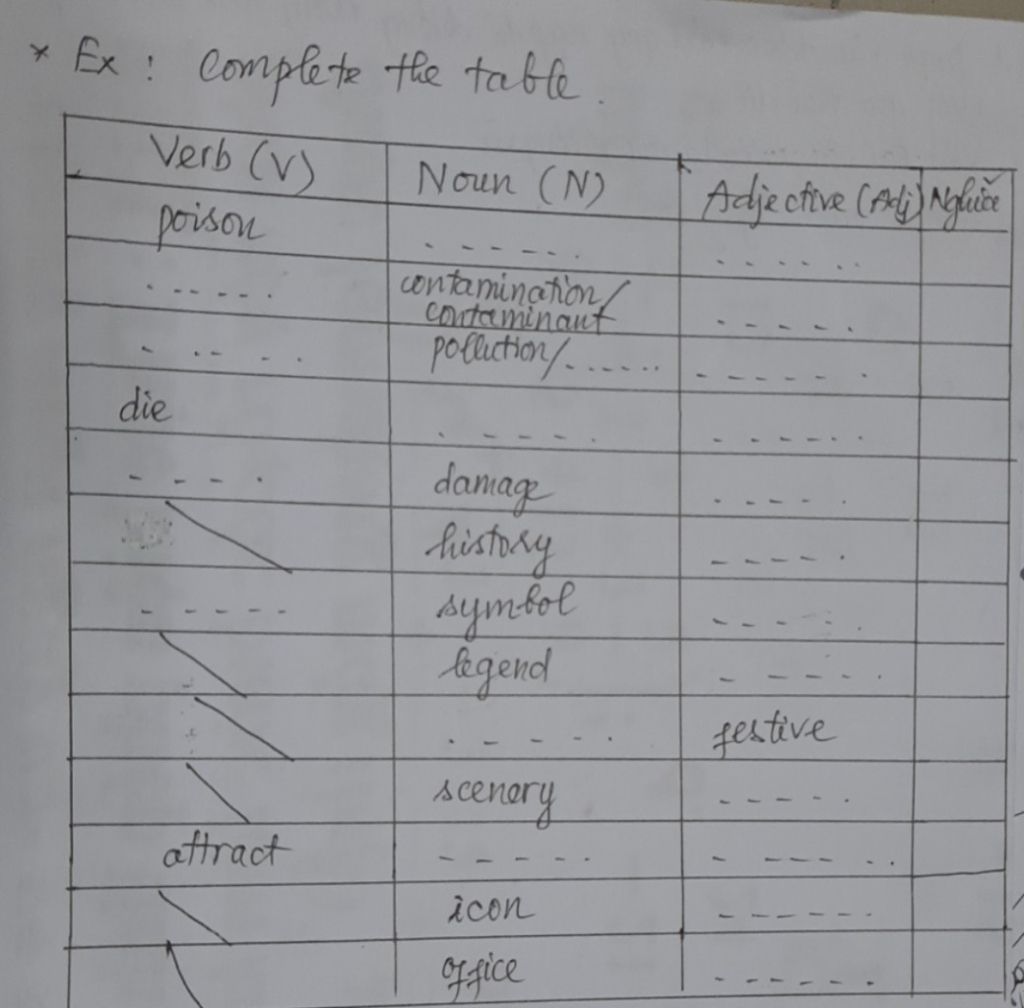 * Ex : Complete the table.
Verb (V) Noun (N) Adjective (Adj) Nghĩa
poison ...... ......
..... contamination/
contaminant .....
..... pollution/...... ......
die ..... ......
.... damage .....
history .....
symbol .....
..... legend .....
..... festive
scenery .....
attract ..... ......
icon ......
office ......